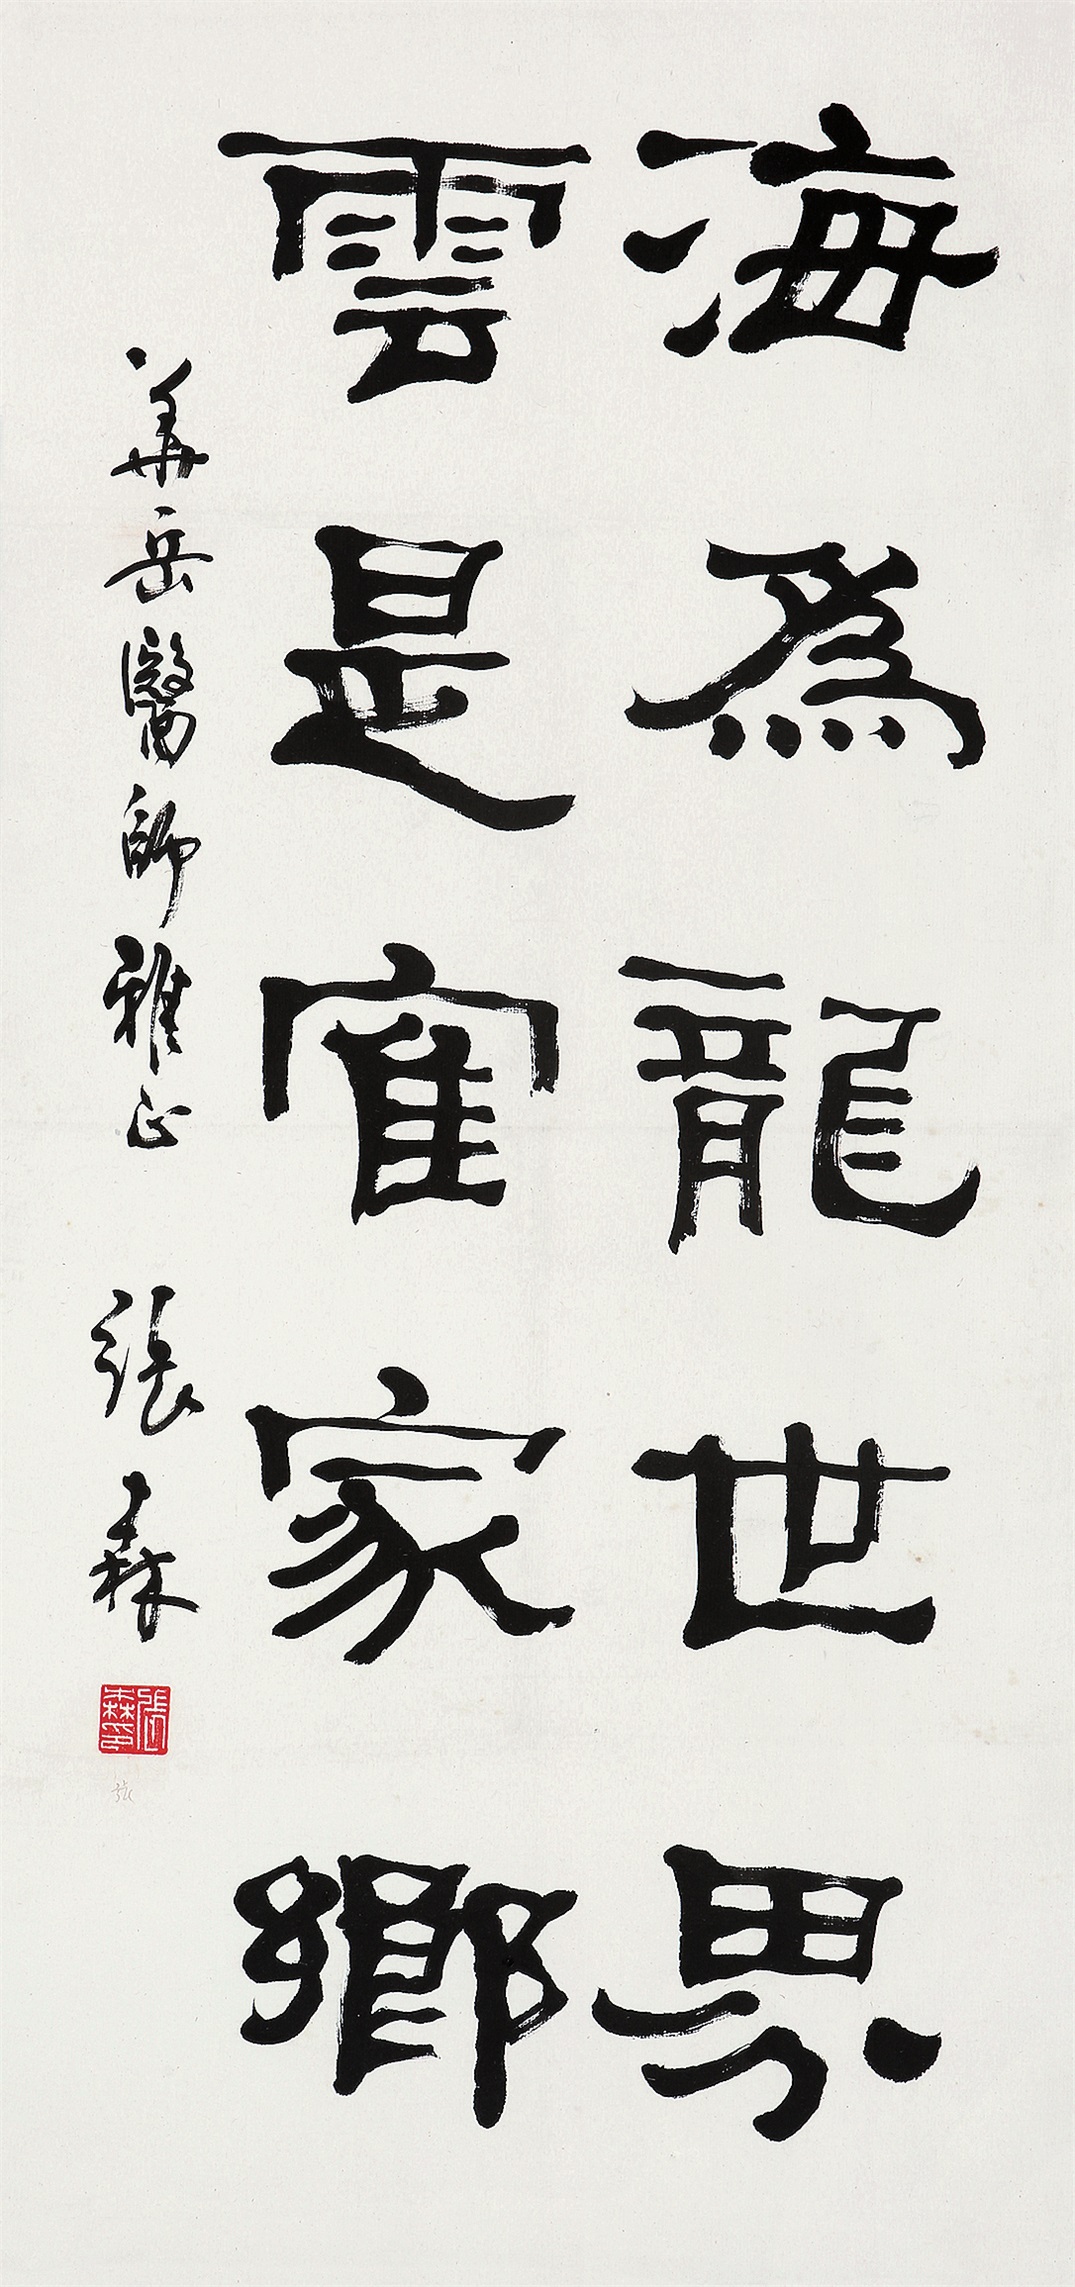 海爲龍世界
雲是寉家鄉
華岳醫師雅正 張森
張森印